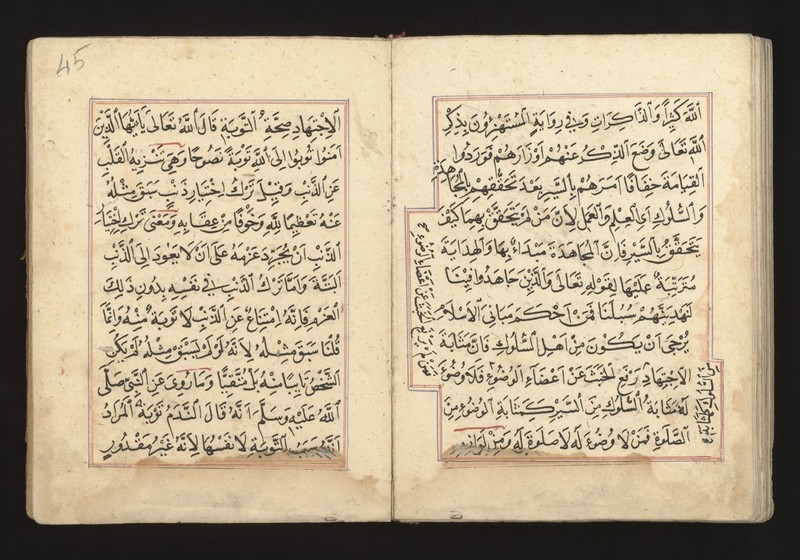 الله كثيرا والذاكرات وفي رواية المستهترون بذكر
الله تعالى وضع الذكر عنهم اوزارهم فوردوا
القيامة خفافا امرهم بالسير بعد تحققهم بالمجاهدة
والسلوك اي العلم والعمل لان من لم يتحقق بهما كيف
يتحقق بالسير فان المجاهدة مبدأ بها والهداية
مترتبة عليها لقوله تعالى والذين جاهدوا فينا
لنهدينهم سبلنا فمن احكم مباني الاسلام
يرجى ان يكون من اهل السلوك فان مثابة
الاجتهاد رفع الخبث عن اعضاء الوضوء فلا وضوء
له مثابة السلوك من السير كمثابة الوضوء من
الصلوة فمن لا وضوء له لا صلوة له ومن
45
الاجتهاد صحة التوبة قال الله تعالى يا ايها الذين
آمنوا توبوا الى الله توبة نصوحا وهي تنزيه القلب
عن الذنب وقيل ترك اختيار ذنب سبق مثله
عنه تعظيما لله وخوفا من عقابه ومعنى ترك اختيار
الذنب ان يجرد عزمه على ان لا يعود الى الذنب
البتة واما ترك الذنب في نفسه بدون ذلك
العزم فانه امتناع عن الذنب لا توبة منه وانما
قلنا سبق مثله لانه لو لم يسبق مثله لم يكن
الشخص تايبا منه بل متقيا وما روى عن النبي صلى
الله عليه وسلم انه قال الندم توبة المراد
انه سبب التوبة لا نفسها لانه غير مقدور